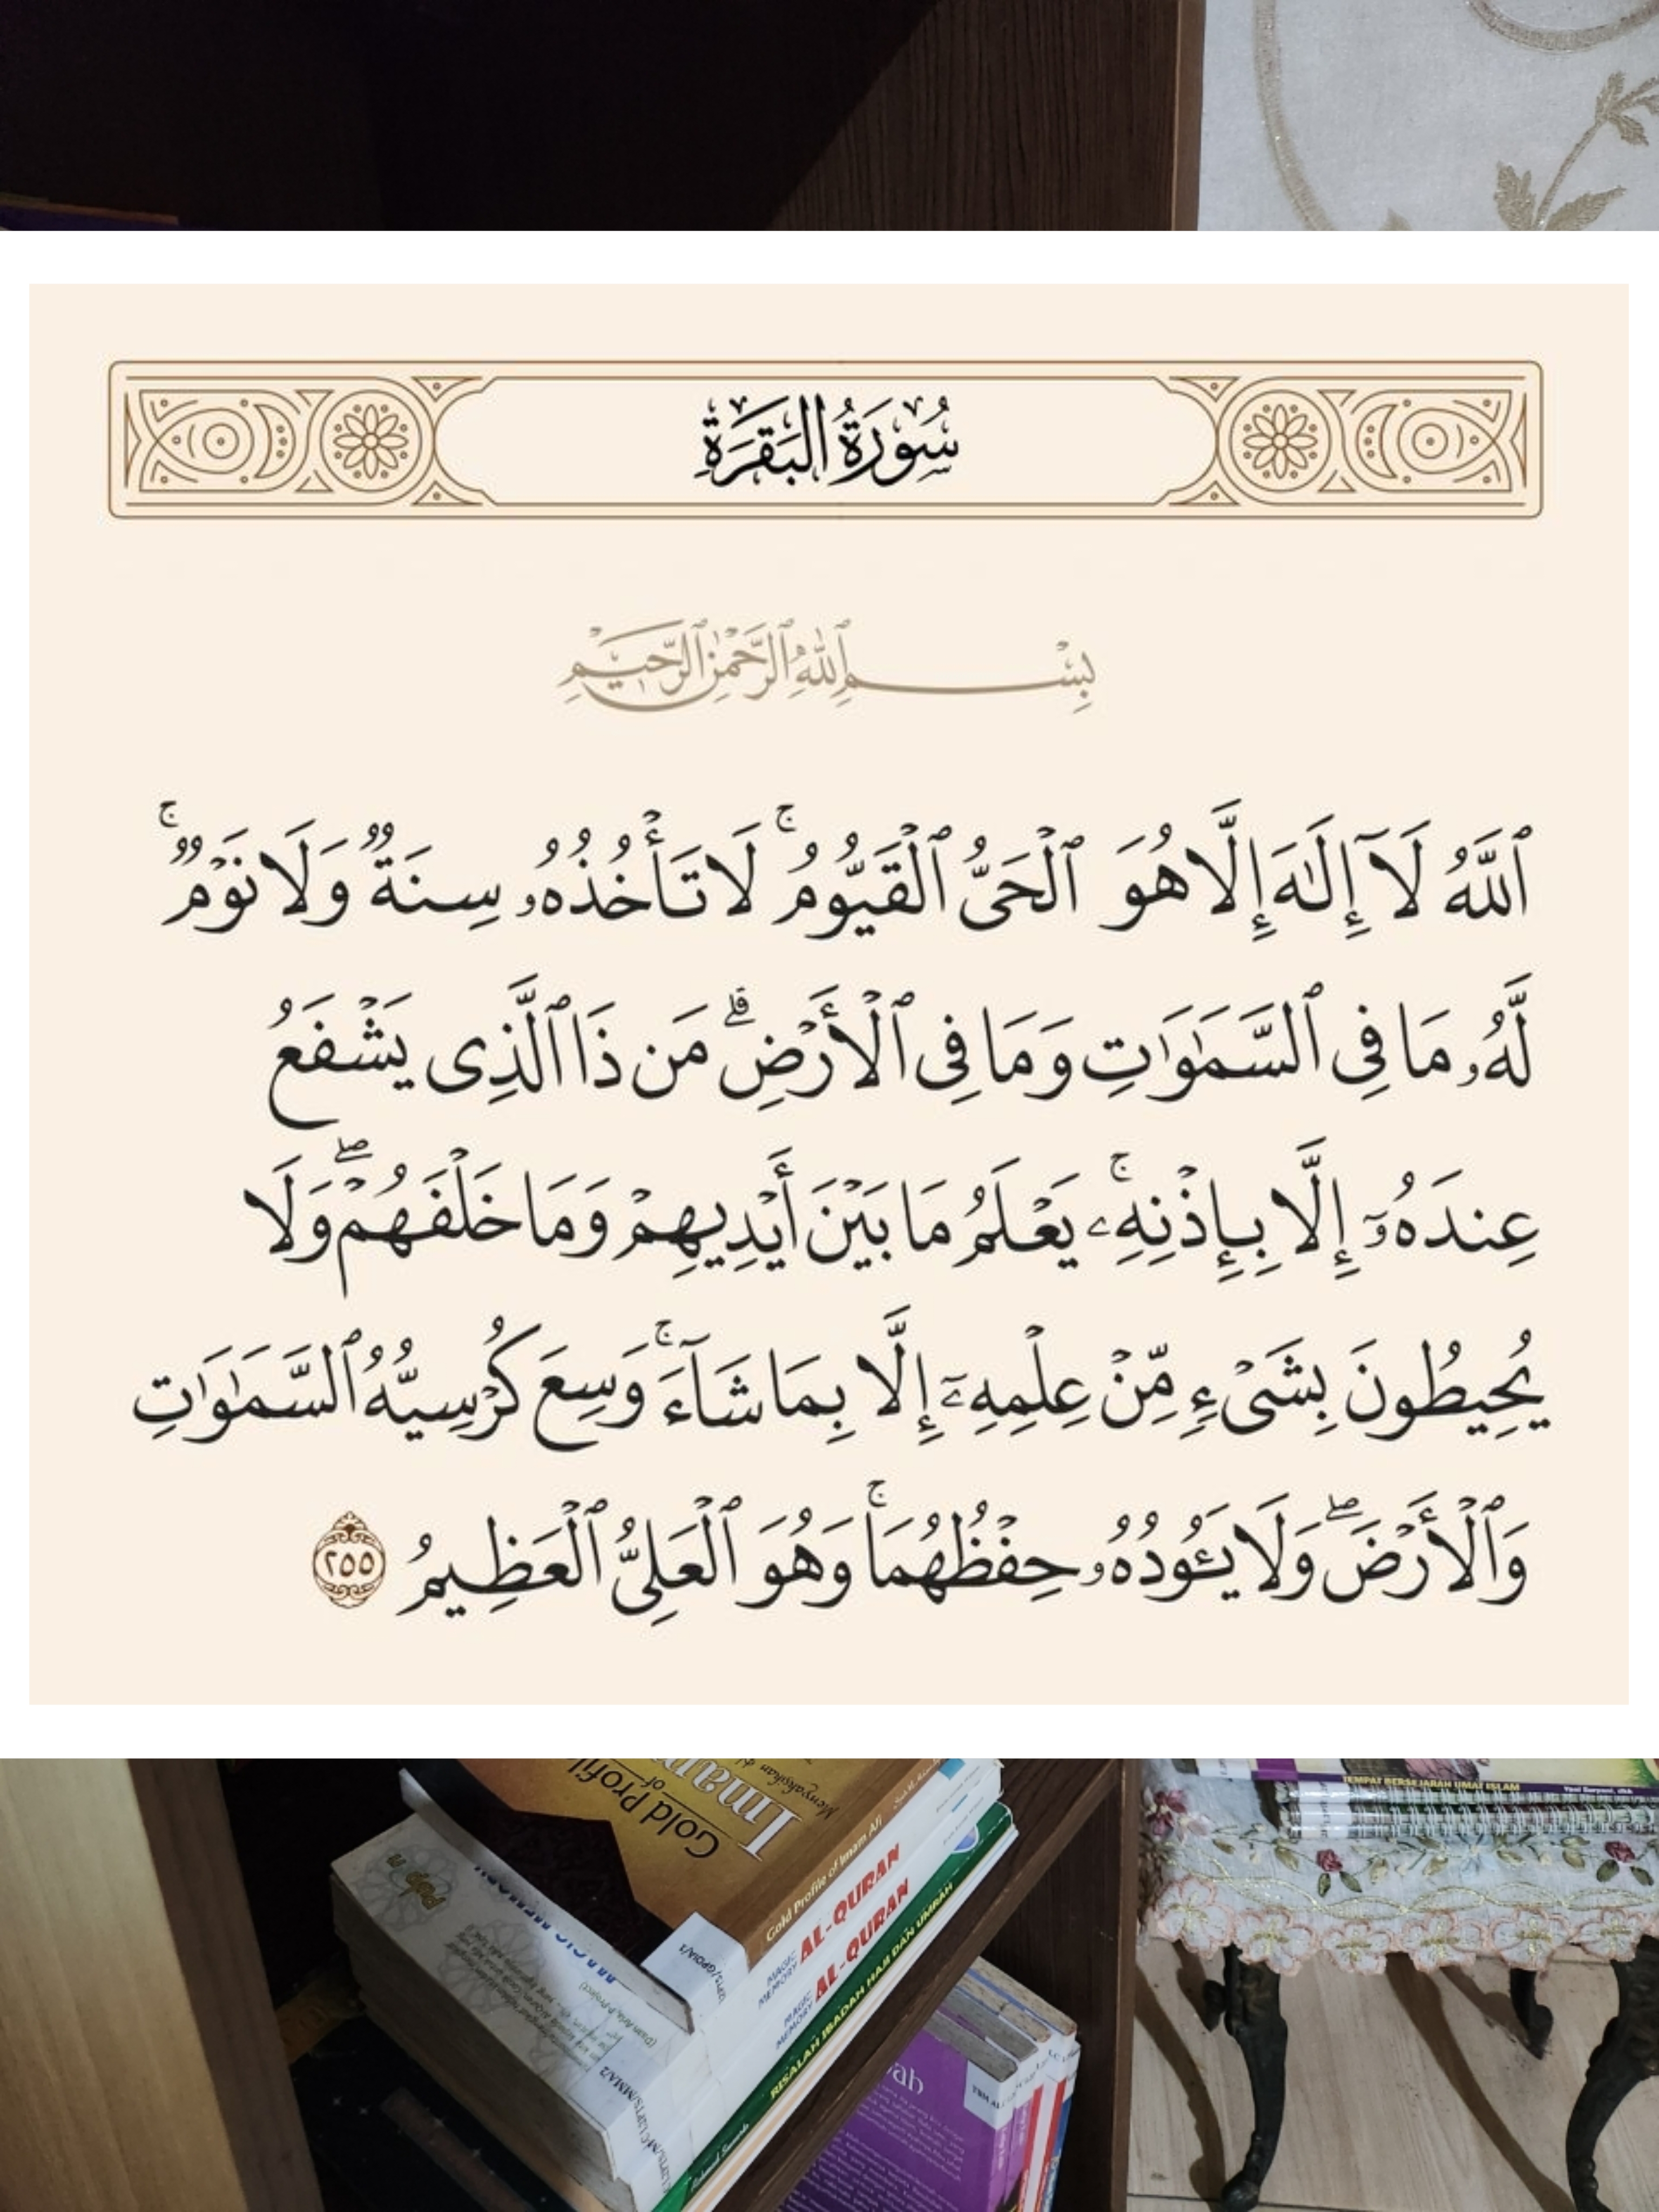 سُورَةُ البَقَرَةِ
بِسْمِ ٱللَّهِ ٱلرَّحْمَٰنِ ٱلرَّحِيمِ
ٱللَّهُ لَآ إِلَٰهَ إِلَّا هُوَ ٱلْحَىُّ ٱلْقَيُّومُ ۚ لَا تَأْخُذُهُۥ سِنَةٌ وَلَا نَوْمٌ ۚ
لَّهُۥ مَا فِى ٱلسَّمَٰوَٰتِ وَمَا فِى ٱلْأَرْضِ ۗ مَن ذَا ٱلَّذِى يَشْفَعُ
عِندَهُۥٓ إِلَّا بِإِذْنِهِۦ ۚ يَعْلَمُ مَا بَيْنَ أَيْدِيهِمْ وَمَا خَلْفَهُمْ ۖ وَلَا
يُحِيطُونَ بِشَىْءٍ مِّنْ عِلْمِهِۦٓ إِلَّا بِمَا شَآءَ ۚ وَسِعَ كُرْسِيُّهُ ٱلسَّمَٰوَٰتِ
وَٱلْأَرْضَ ۖ وَلَا يَـُٔودُهُۥ حِفْظُهُمَا ۚ وَهُوَ ٱلْعَلِىُّ ٱلْعَظِيمُ ٢٥٥
TEMPAT BERSEJARAH UMAT ISLAM
Gold Profil
of
Imam
Menyaksikan
Gold Profile of Imam Afi
MAGIC MEMORY AL-QURAN
MAGIC MEMORY AL-QURAN
RISALAH IBADAH HAJI DAN UMRAH